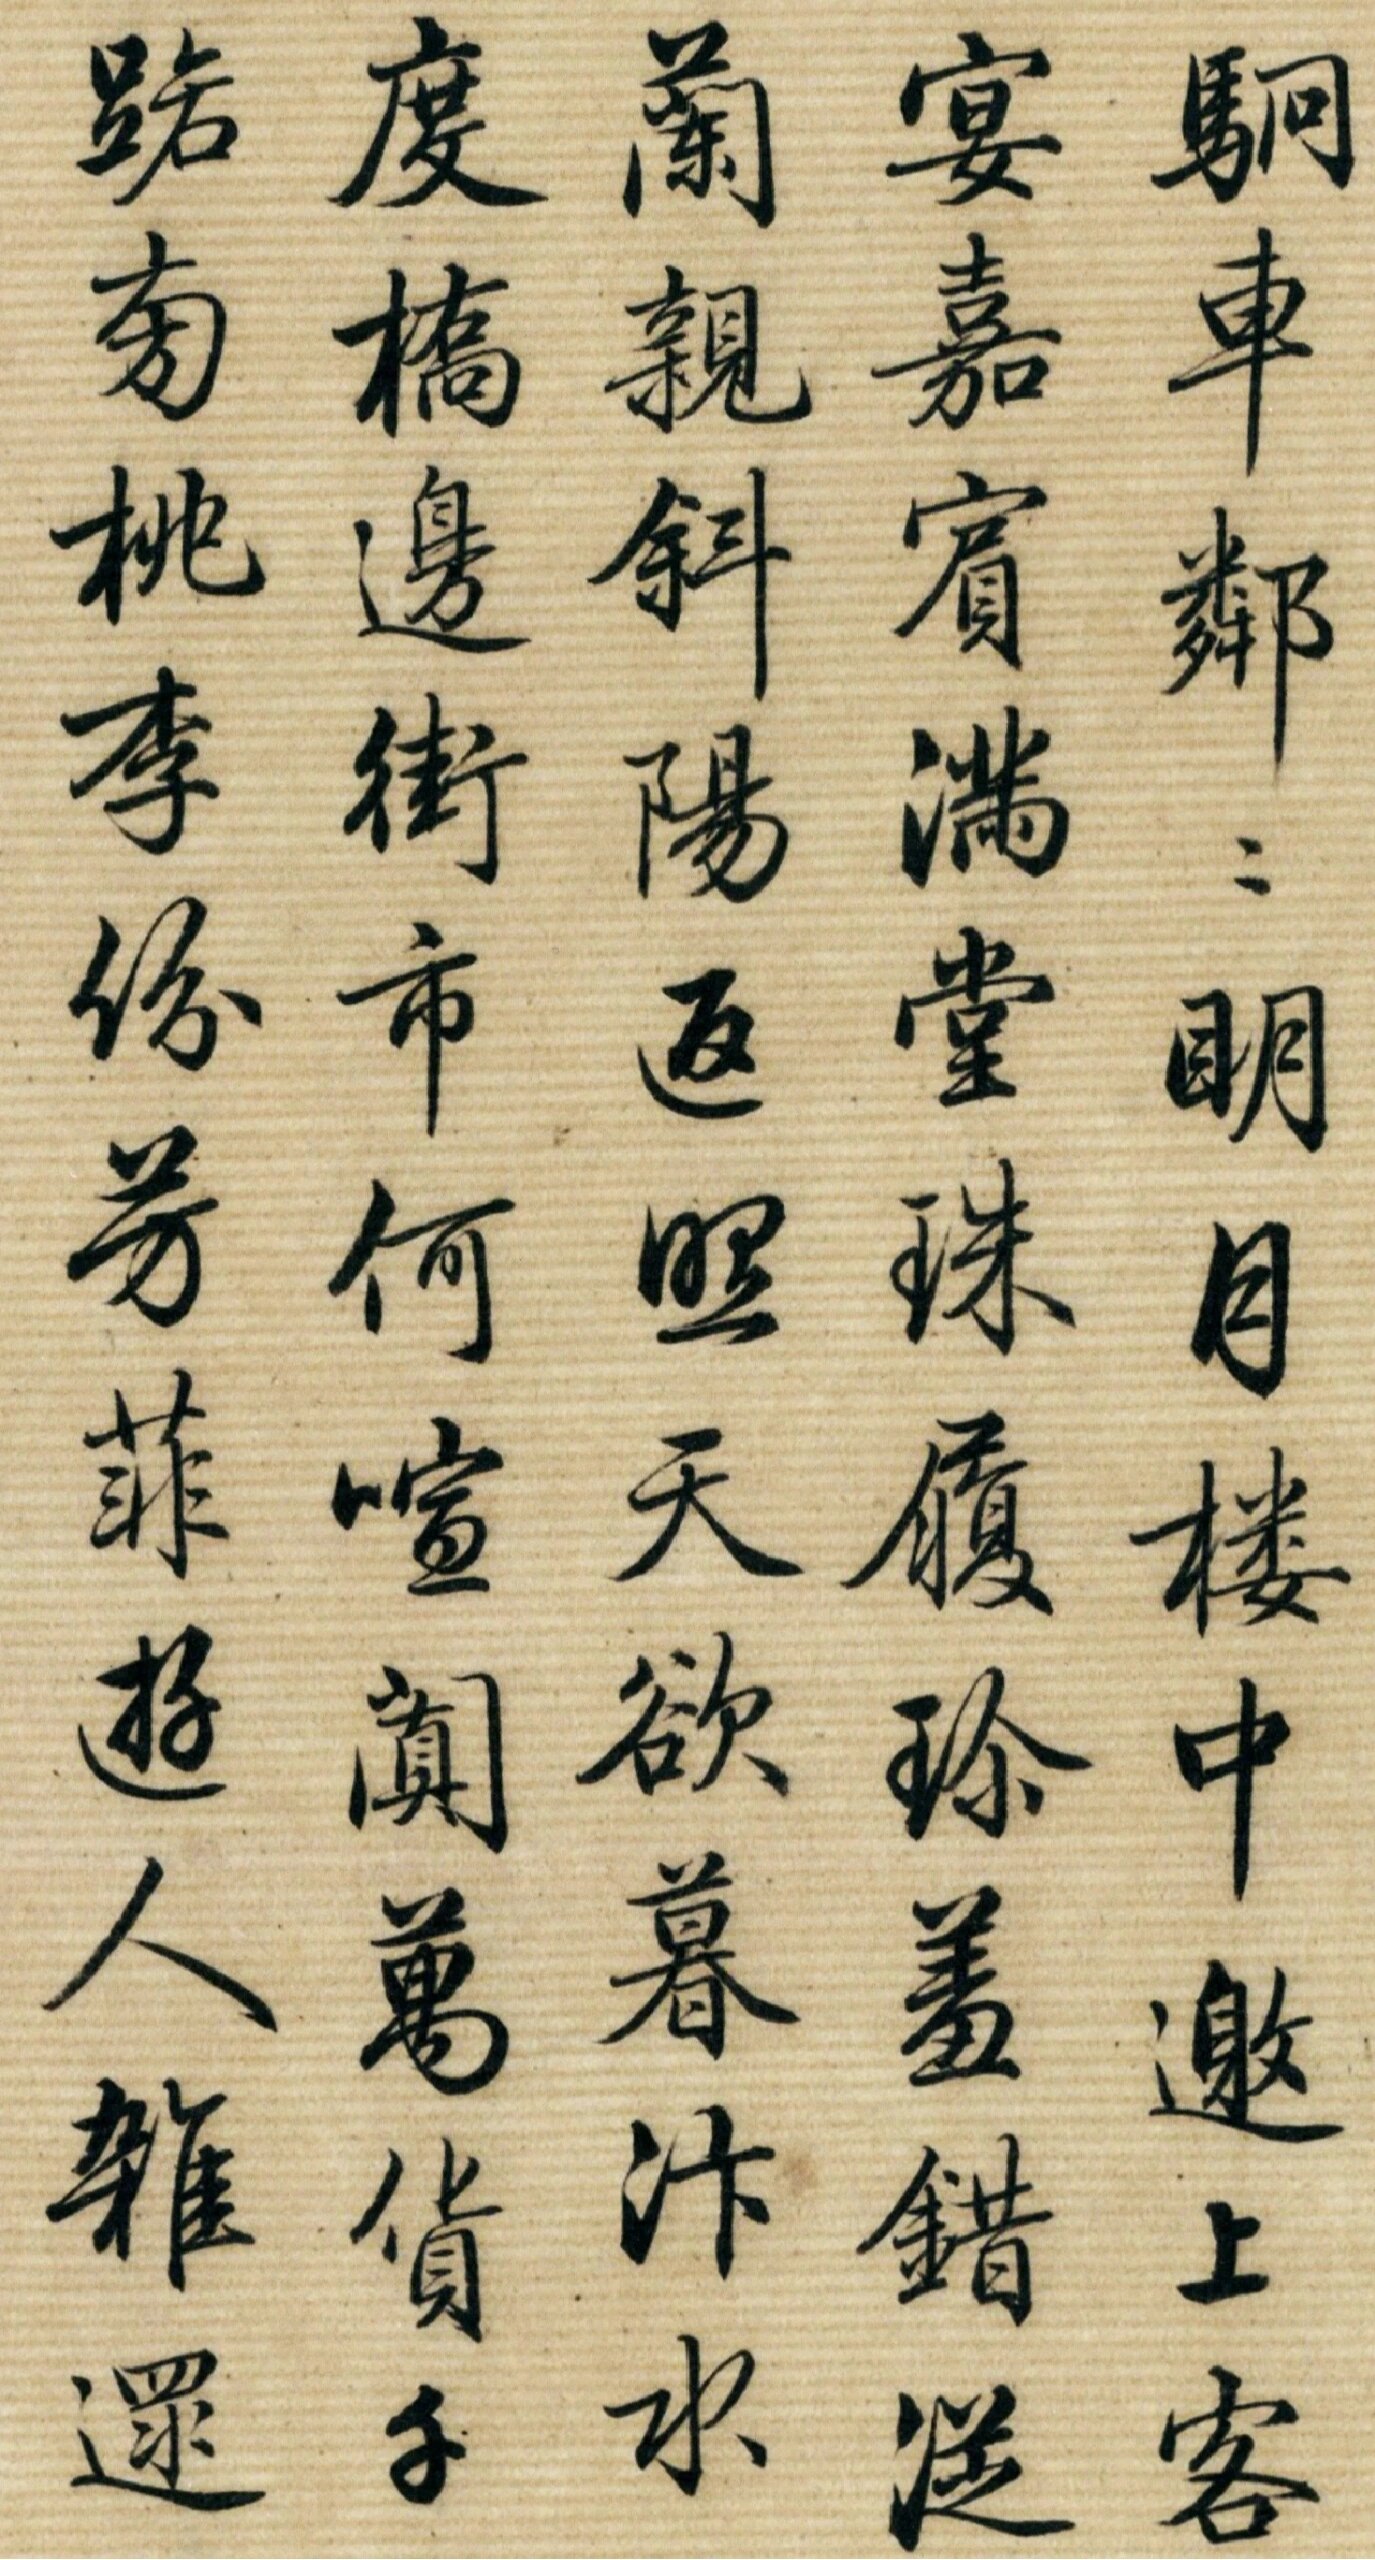 駉車鄰〻明月楼中邀上客
宴嘉賔満堂珠履珍羞錯遝
蘭親斜陽返照天欲暮汴水
度橋邊街市何喧闐萬貨千
路旁桃李份芳菲遊人雜還